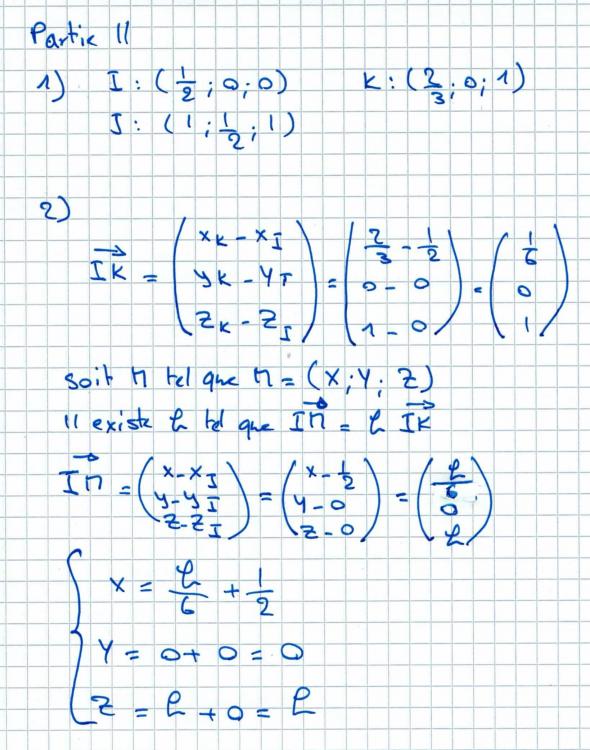 Partie II
1) I : (1/2 ; 0 ; 0) K : (2/3 ; 0 ; 1)
J : (1 ; 1/2 ; 1)
2)
IK→ = (xK - xI ; yK - yI ; zK - zI) = (2/3 - 1/2 ; 0 - 0 ; 1 - 0) = (1/6 ; 0 ; 1)
soit M tel que M = (X ; Y ; Z)
Il existe k tel que IM→ = k IK→
IM→ = (x - xI ; y - yI ; z - zI) = (x - 1/2 ; y - 0 ; z - 0) = (k/6 ; 0 ; k)
{ X = k/6 + 1/2
Y = 0 + 0 = 0
Z = k + 0 = k